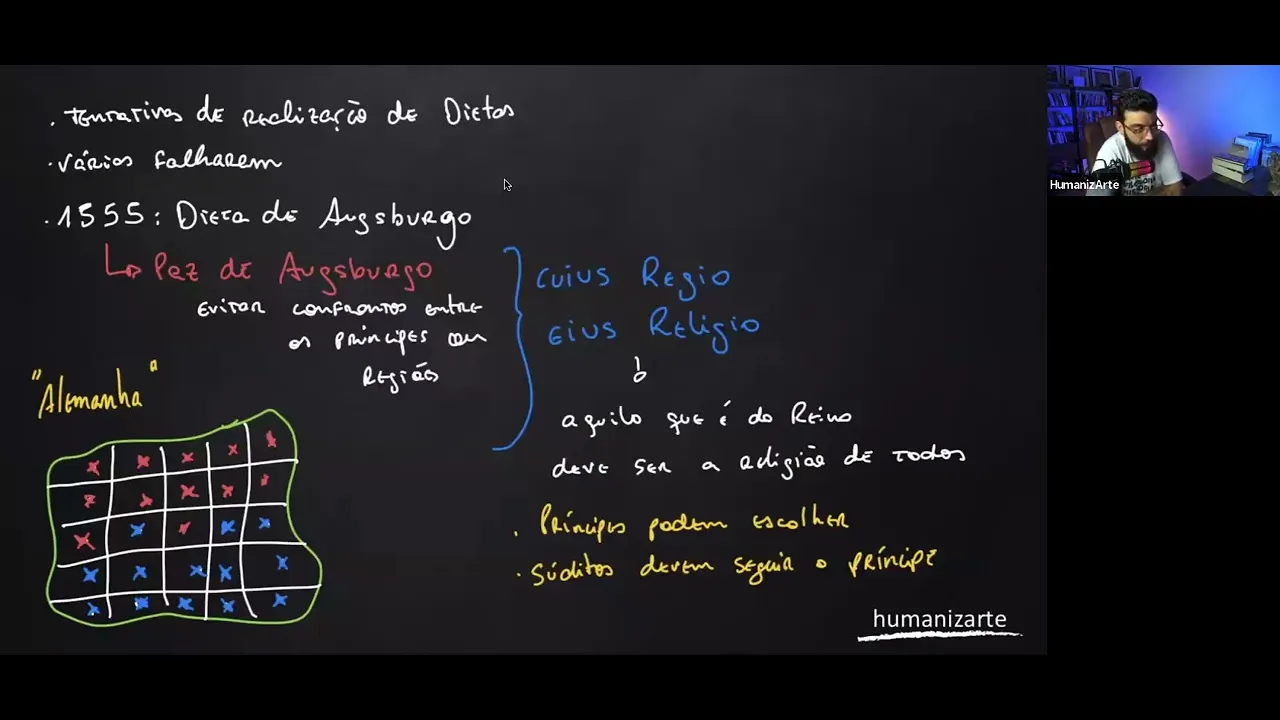 . Tentativas de realização de Dietas
. Várias falharem
. 1555: Dieta de Augsburgo
↳ Paz de Augsburgo
Evitar confrontos entre
os príncipes em
Regiões
cuius Regio
eius Religio
aquilo que é do Reino
deve ser a religião de todos
. Príncipes podem escolher
. Súditos devem seguir o príncipe
"Alemanha"
humanizarte
HumanizArte